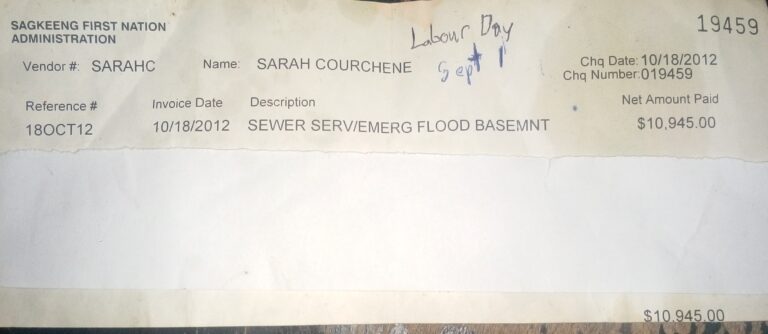 SAGKEENG FIRST NATION
ADMINISTRATION
19459
Labour Day
Sept 1
Vendor #: SARAHC Name: SARAH COURCHENE
Chq Date: 10/18/2012
Chq Number: 019459
Reference # Invoice Date Description Net Amount Paid
18OCT12 10/18/2012 SEWER SERV/EMERG FLOOD BASEMNT $10,945.00
$10,945.00